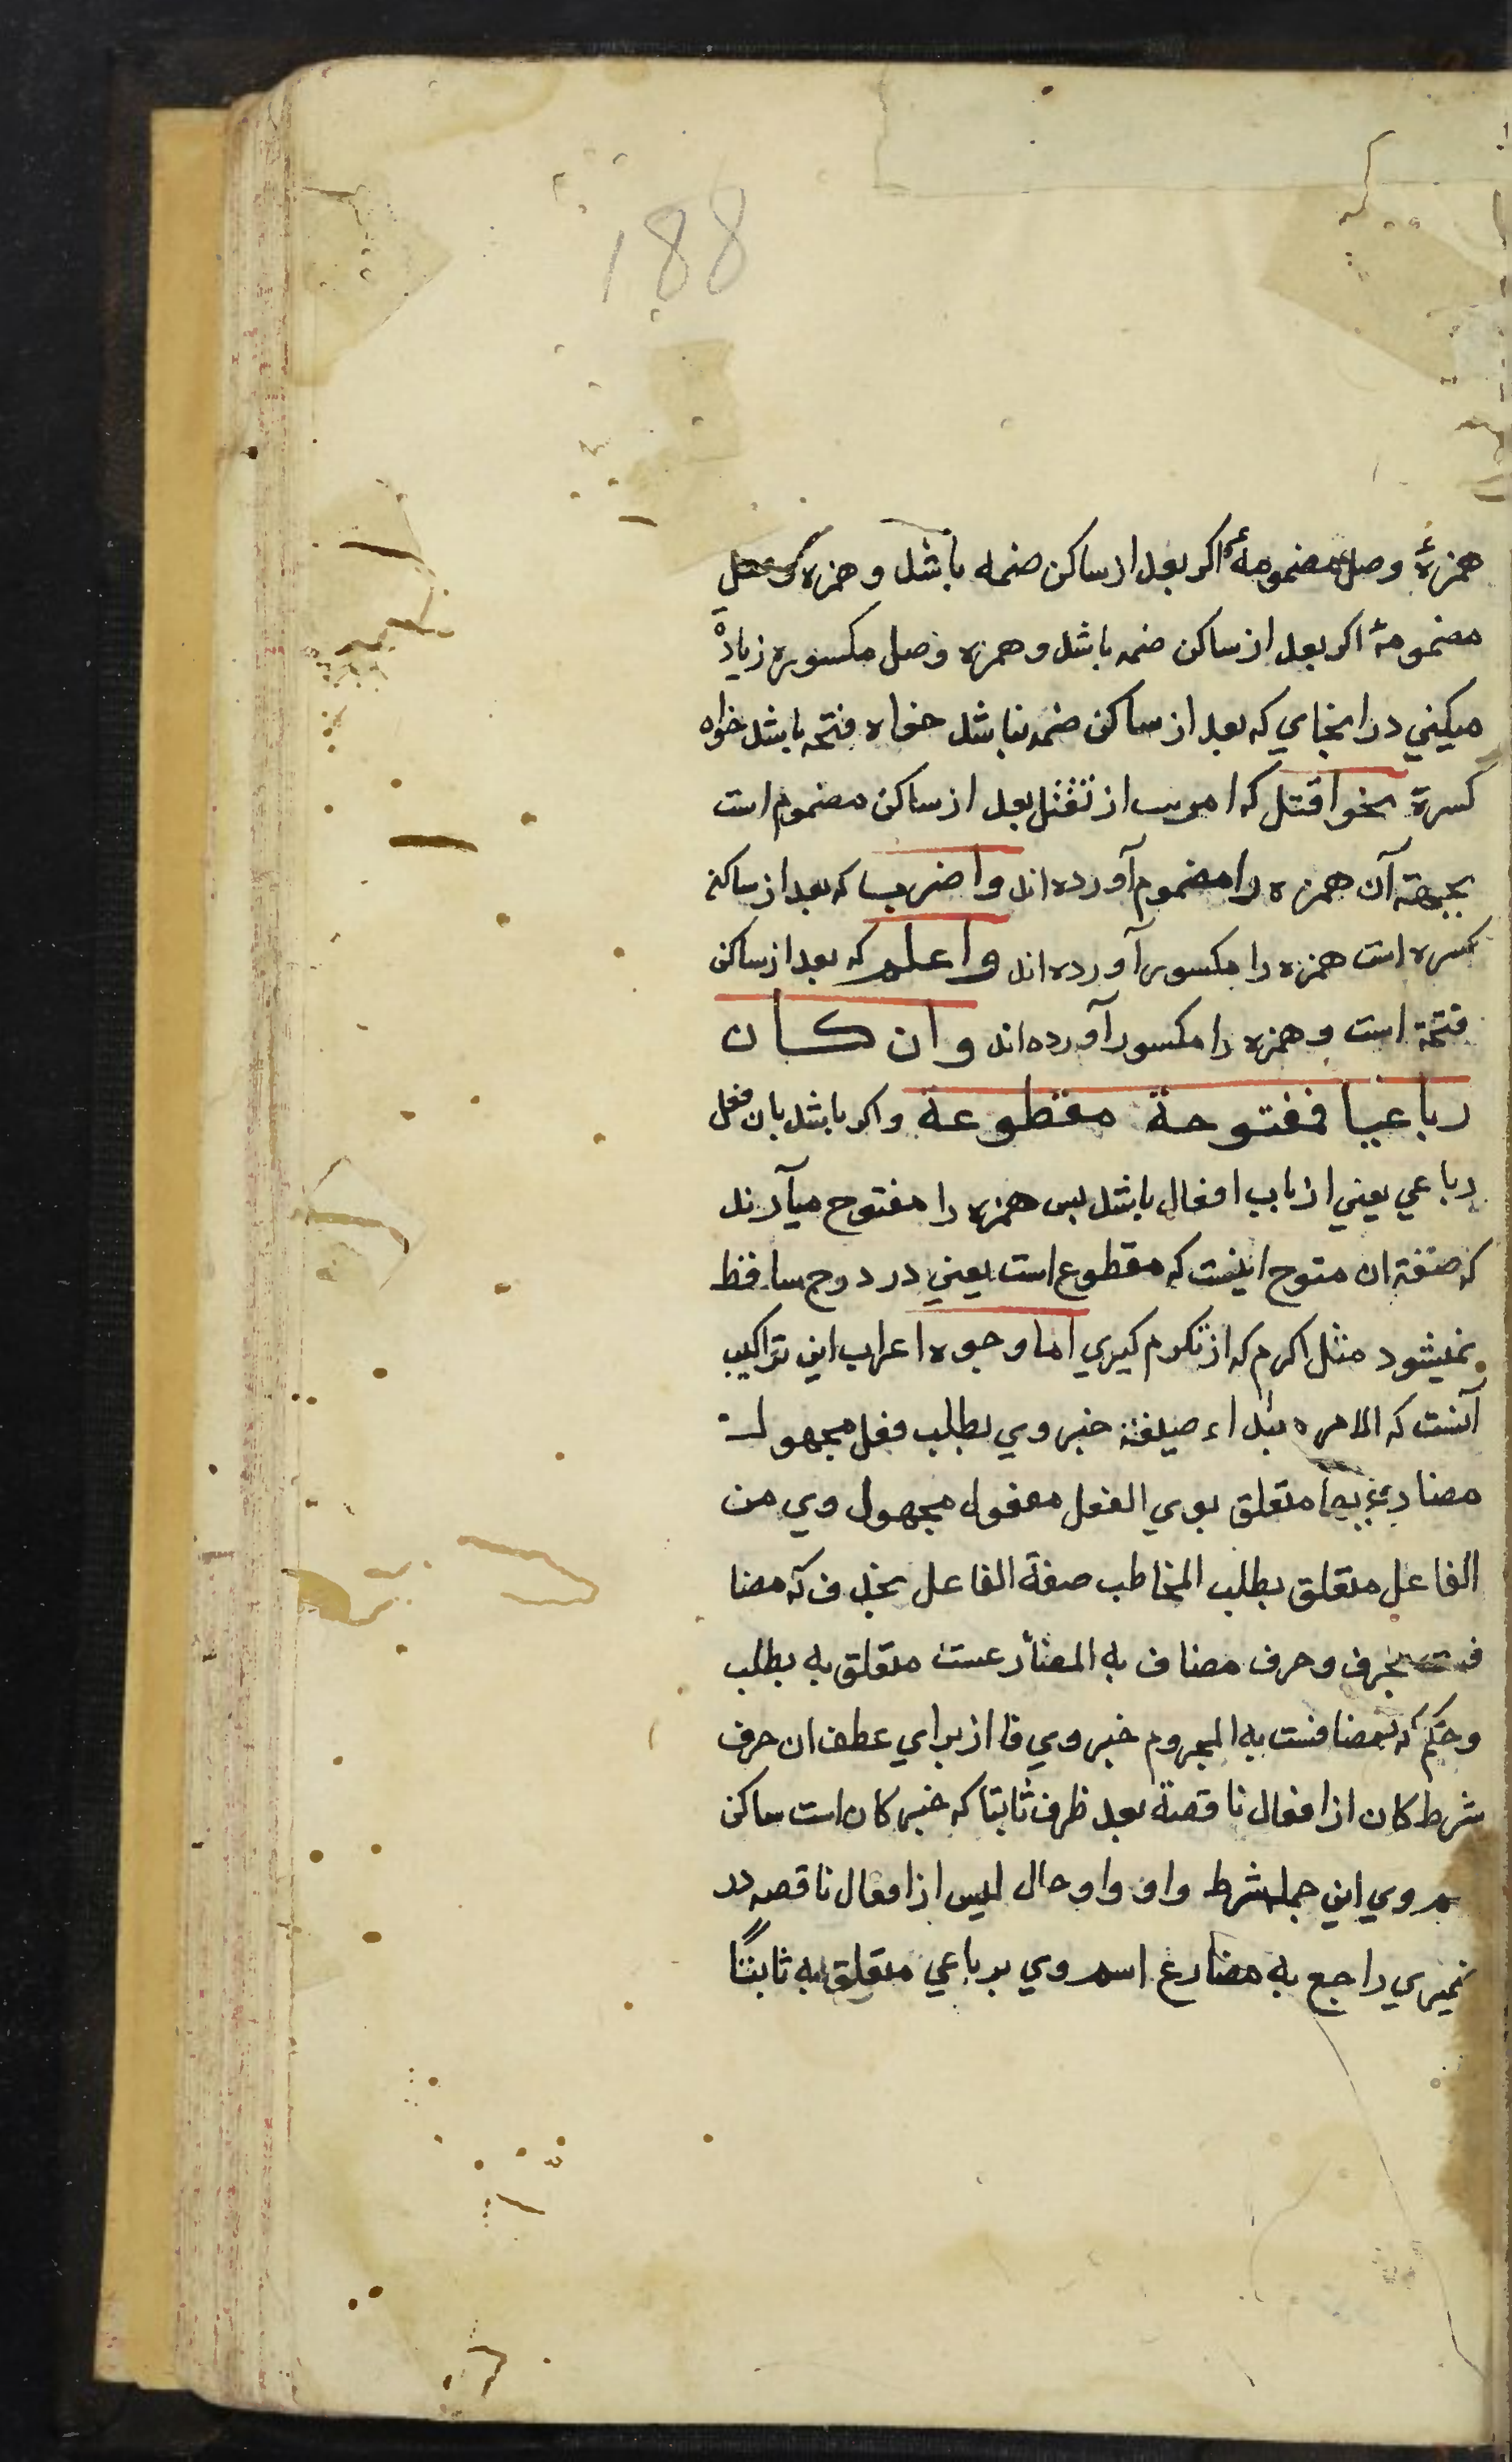 188
همزۀ وصل مضمومۀ اکر بعد از ساکن ضمه باشد و همزه
مضمومۀ اکر بعد از ساکن ضمه باشد و همزه وصل مکسوره زیادة
میکني در انجاي که بعد از ساکن ضمه نباشد خواه فتحه باشد خواه
کسرة نحو اقتل که امرست از تقتل بعد از ساکن مضموم است
بجهته آن همزه را مضموم آورده اند واضرب که بعد از ساکن
کسره است همزه را مکسور آورده اند واعلم که بعد از ساکن
فتحة است و همزه را مکسور آورده اند وان کان
رباعیا فمفتوحة مقطوعة واکر باشد بان فعل
رباعي یعني از باب افعال باشد بس همزه را مفتوح میآرند
که صفة ان متوح اینست که مقطوع است یعني در درج ساقط
نمیشود مثل اکرم که از تکرم کیري اما وجوه اعراب این تراکیب
آنست که الامر مبتداء صیغة خبر وي یطلب فعل مجهول
مضارع بها متعلق بوي الفعل مفعول مجهول وي من
الفاعل متعلق بطلب المخاطب صفة الفاعل بحذف که مضا
فست بحرف وحرف مضاف به المضارعست متعلق به یطلب
وحکم که مضافست به المجزوم خبر وي فا از براي عطف ان حرف
شرط کان از افعال ناقصة بعد ظرف ثابتا که خبر کان است ساکن
اسم وي این جمله شرط واو واو حال لیس از افعال ناقصه در
ضمیري راجع به مضارع اسم وي برباعي متعلق به ثابتًا